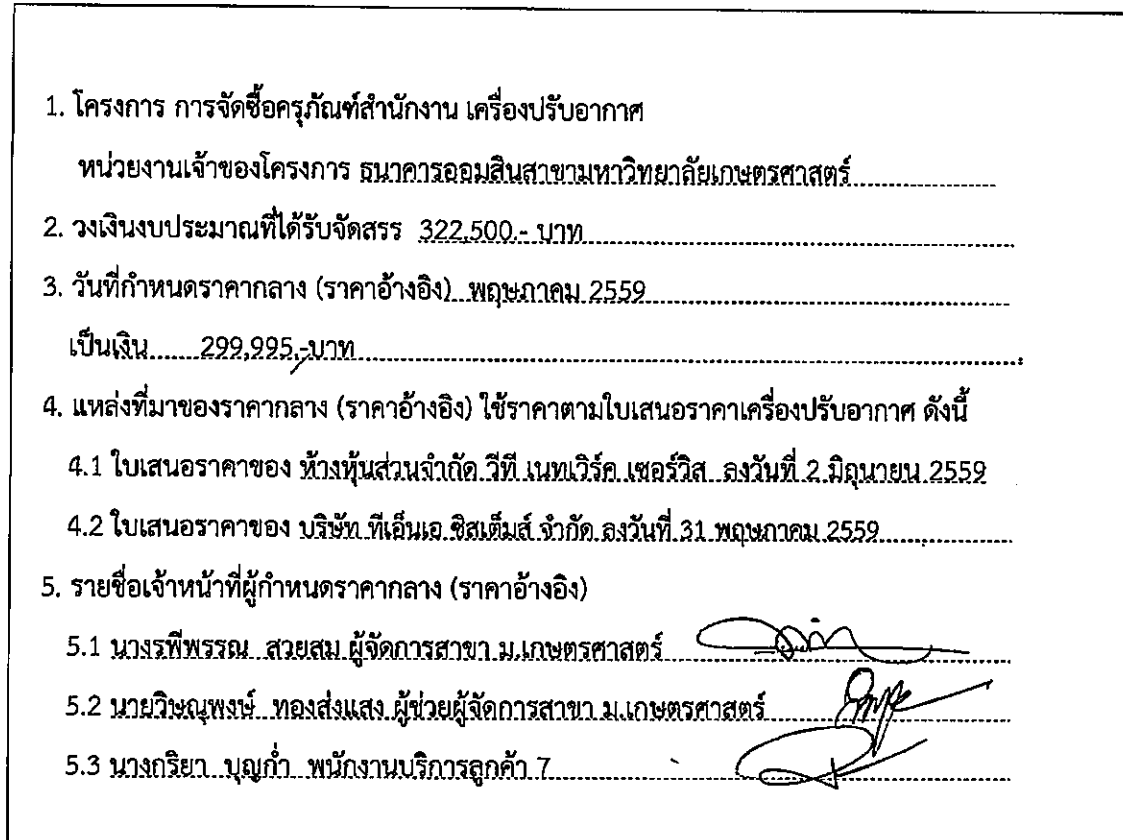 1. โครงการ การจัดซื้อครุภัณฑ์สำนักงาน เครื่องปรับอากาศ
หน่วยงานเจ้าของโครงการ ธนาคารออมสินสาขามหาวิทยาลัยเกษตรศาสตร์
2. วงเงินงบประมาณที่ได้รับจัดสรร 322,500.- บาท
3. วันที่กำหนดราคากลาง (ราคาอ้างอิง) พฤษภาคม 2559
เป็นเงิน 299,995,-บาท
4. แหล่งที่มาของราคากลาง (ราคาอ้างอิง) ใช้ราคาตามใบเสนอราคาเครื่องปรับอากาศ ดังนี้
4.1 ใบเสนอราคาของ ห้างหุ้นส่วนจำกัด วีที เนทเวิร์ค เซอร์วิส ลงวันที่ 2 มิถุนายน 2559
4.2 ใบเสนอราคาของ บริษัท ทีเอ็นเอ ซิสเต็มส์ จำกัด ลงวันที่ 31 พฤษภาคม 2559
5. รายชื่อเจ้าหน้าที่ผู้กำหนดราคากลาง (ราคาอ้างอิง)
5.1 นางรพีพรรณ สวยสม ผู้จัดการสาขา ม.เกษตรศาสตร์
5.2 นายวิษณุพงษ์ ทองส่งแสง ผู้ช่วยผู้จัดการสาขา ม.เกษตรศาสตร์
5.3 นางกริยา บุญก่ำ พนักงานบริการลูกค้า 7